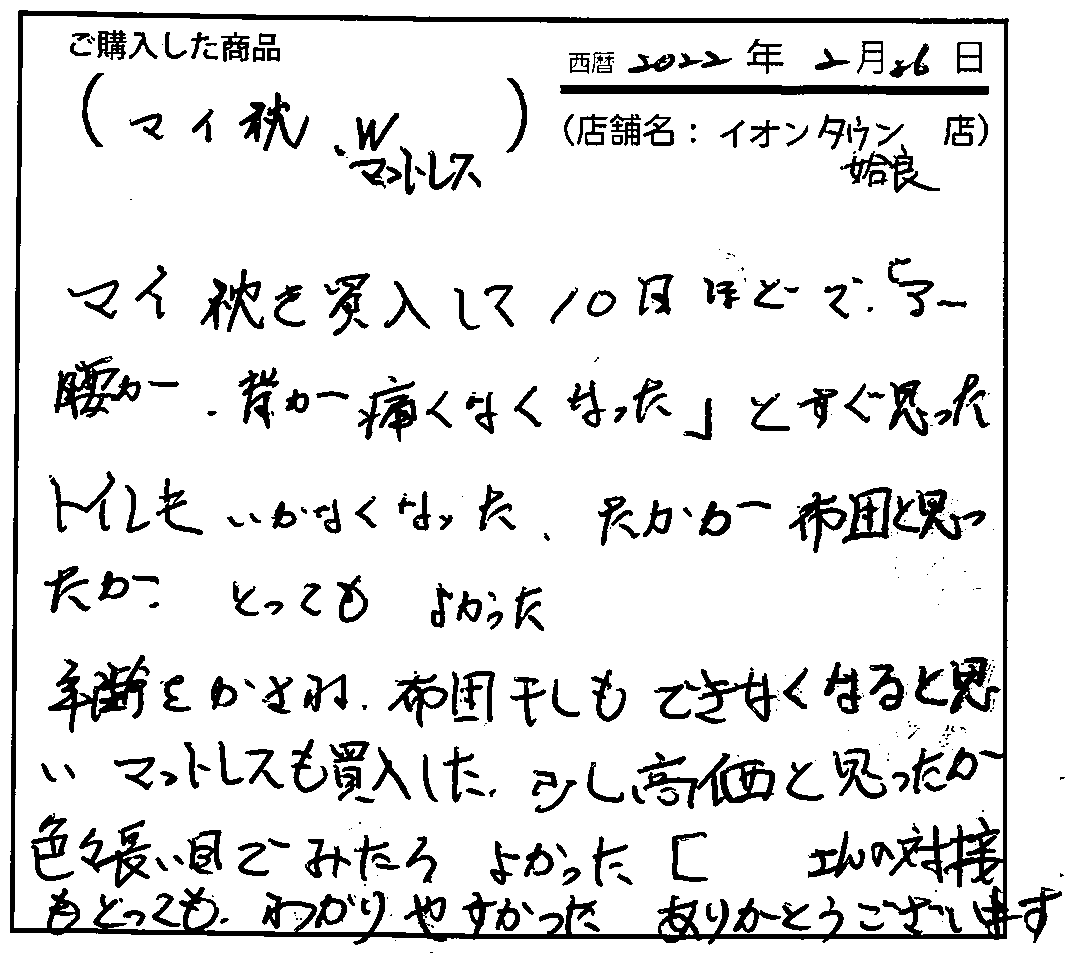 ご購入した商品
西暦 2022 年 2 月 26 日
(マイ枕、W
マットレス)
(店舗名：イオンタウン 店)
姶良
マイ枕を買入して10日ほどで.「アー
腰が、背が痛くなくなった」とすぐ思った
トイレもいかなくなった、たかが布団と思っ
たが、とってもよかった
年齢をかさね、布団干しもできなくなると思
い マットレスも買入した、少し高価と思ったが
色々長い目でみたら よかった [ さんの対接
もとっても、わかりやすかった ありがとうございます